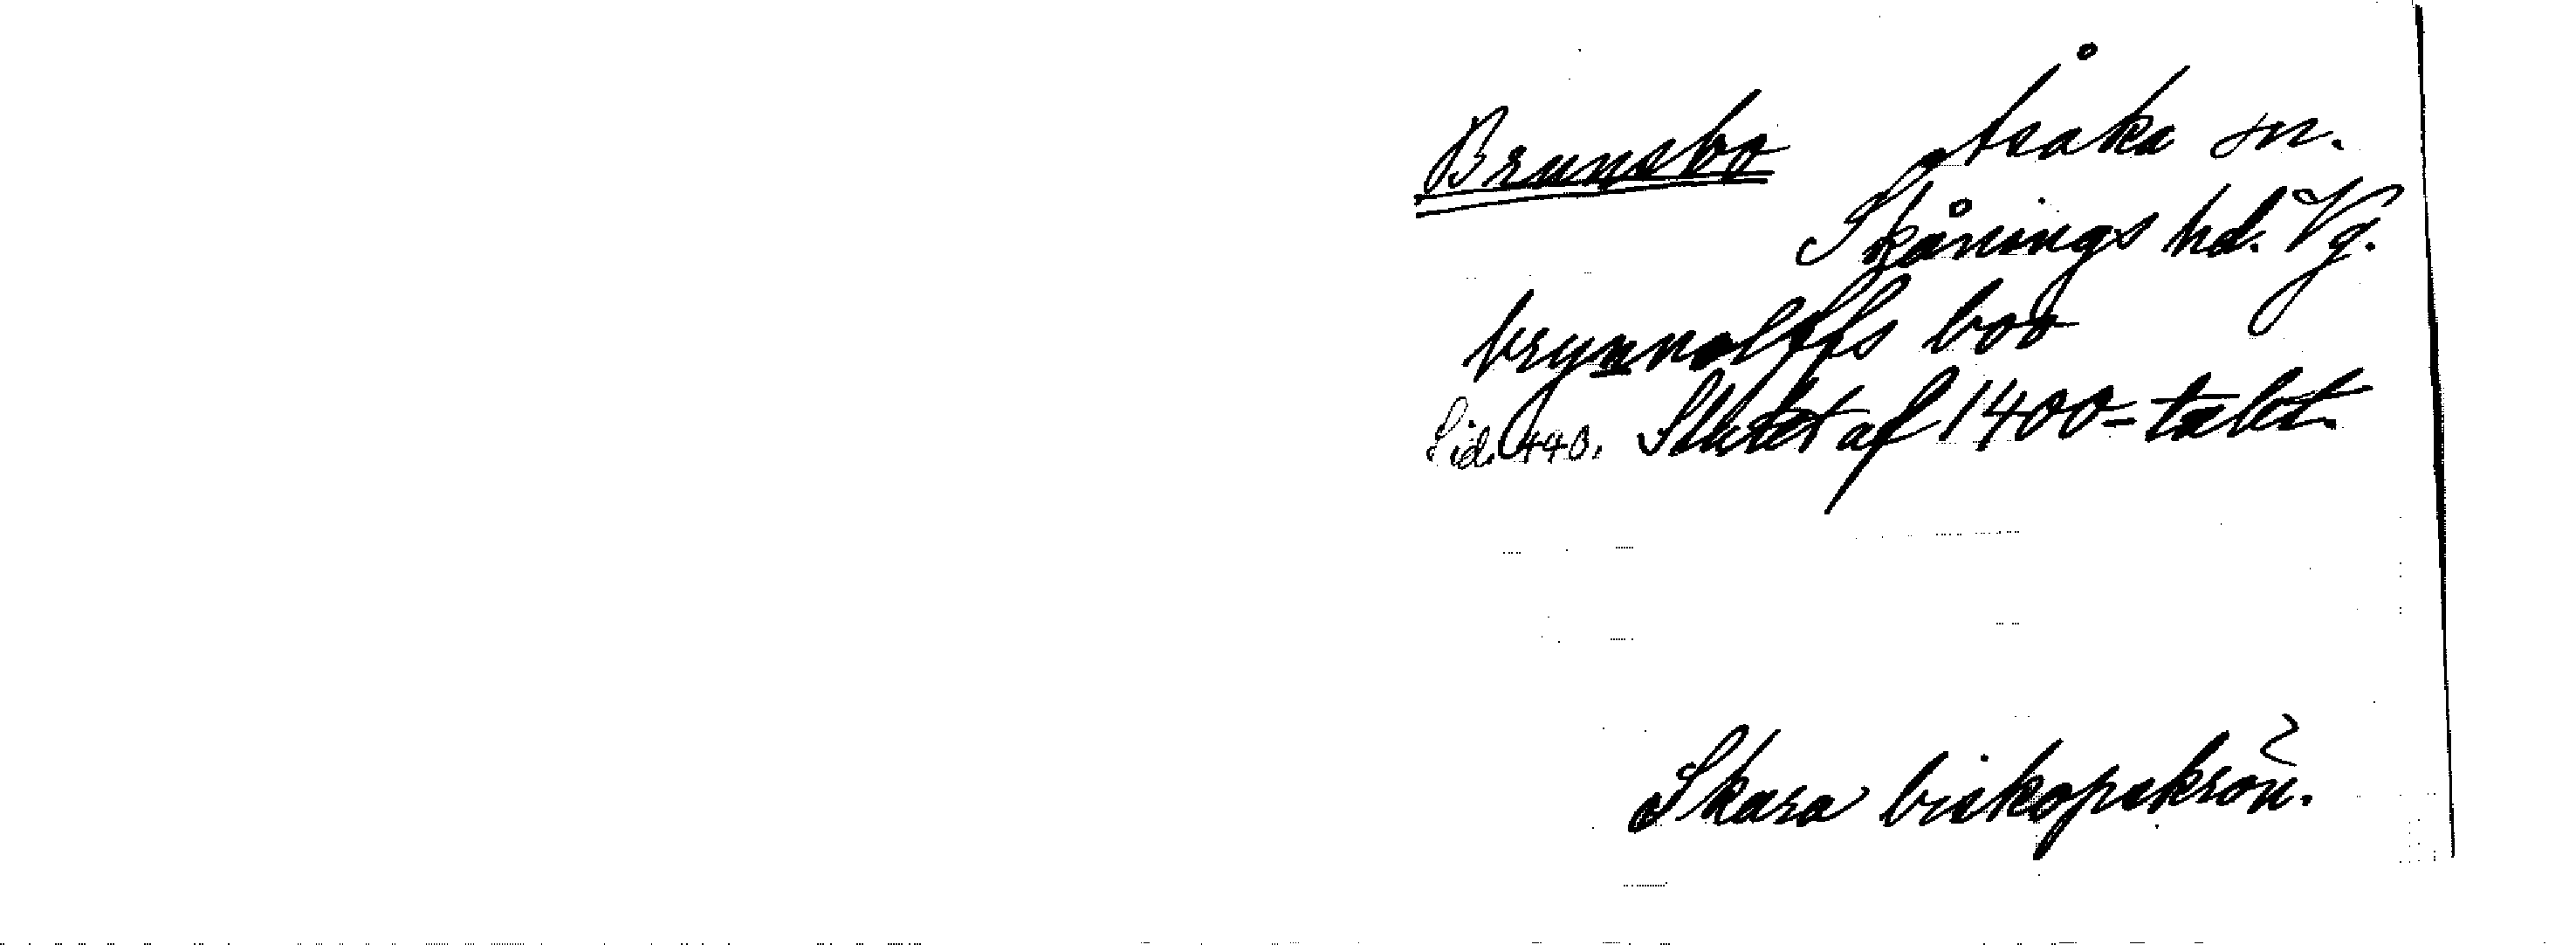 Brunsbo Åsaka sn.
Skånings hd. Vg.
brynnolffs boo
Sid. 440. Slutet af 1400-talet
Skara biskopskrön.